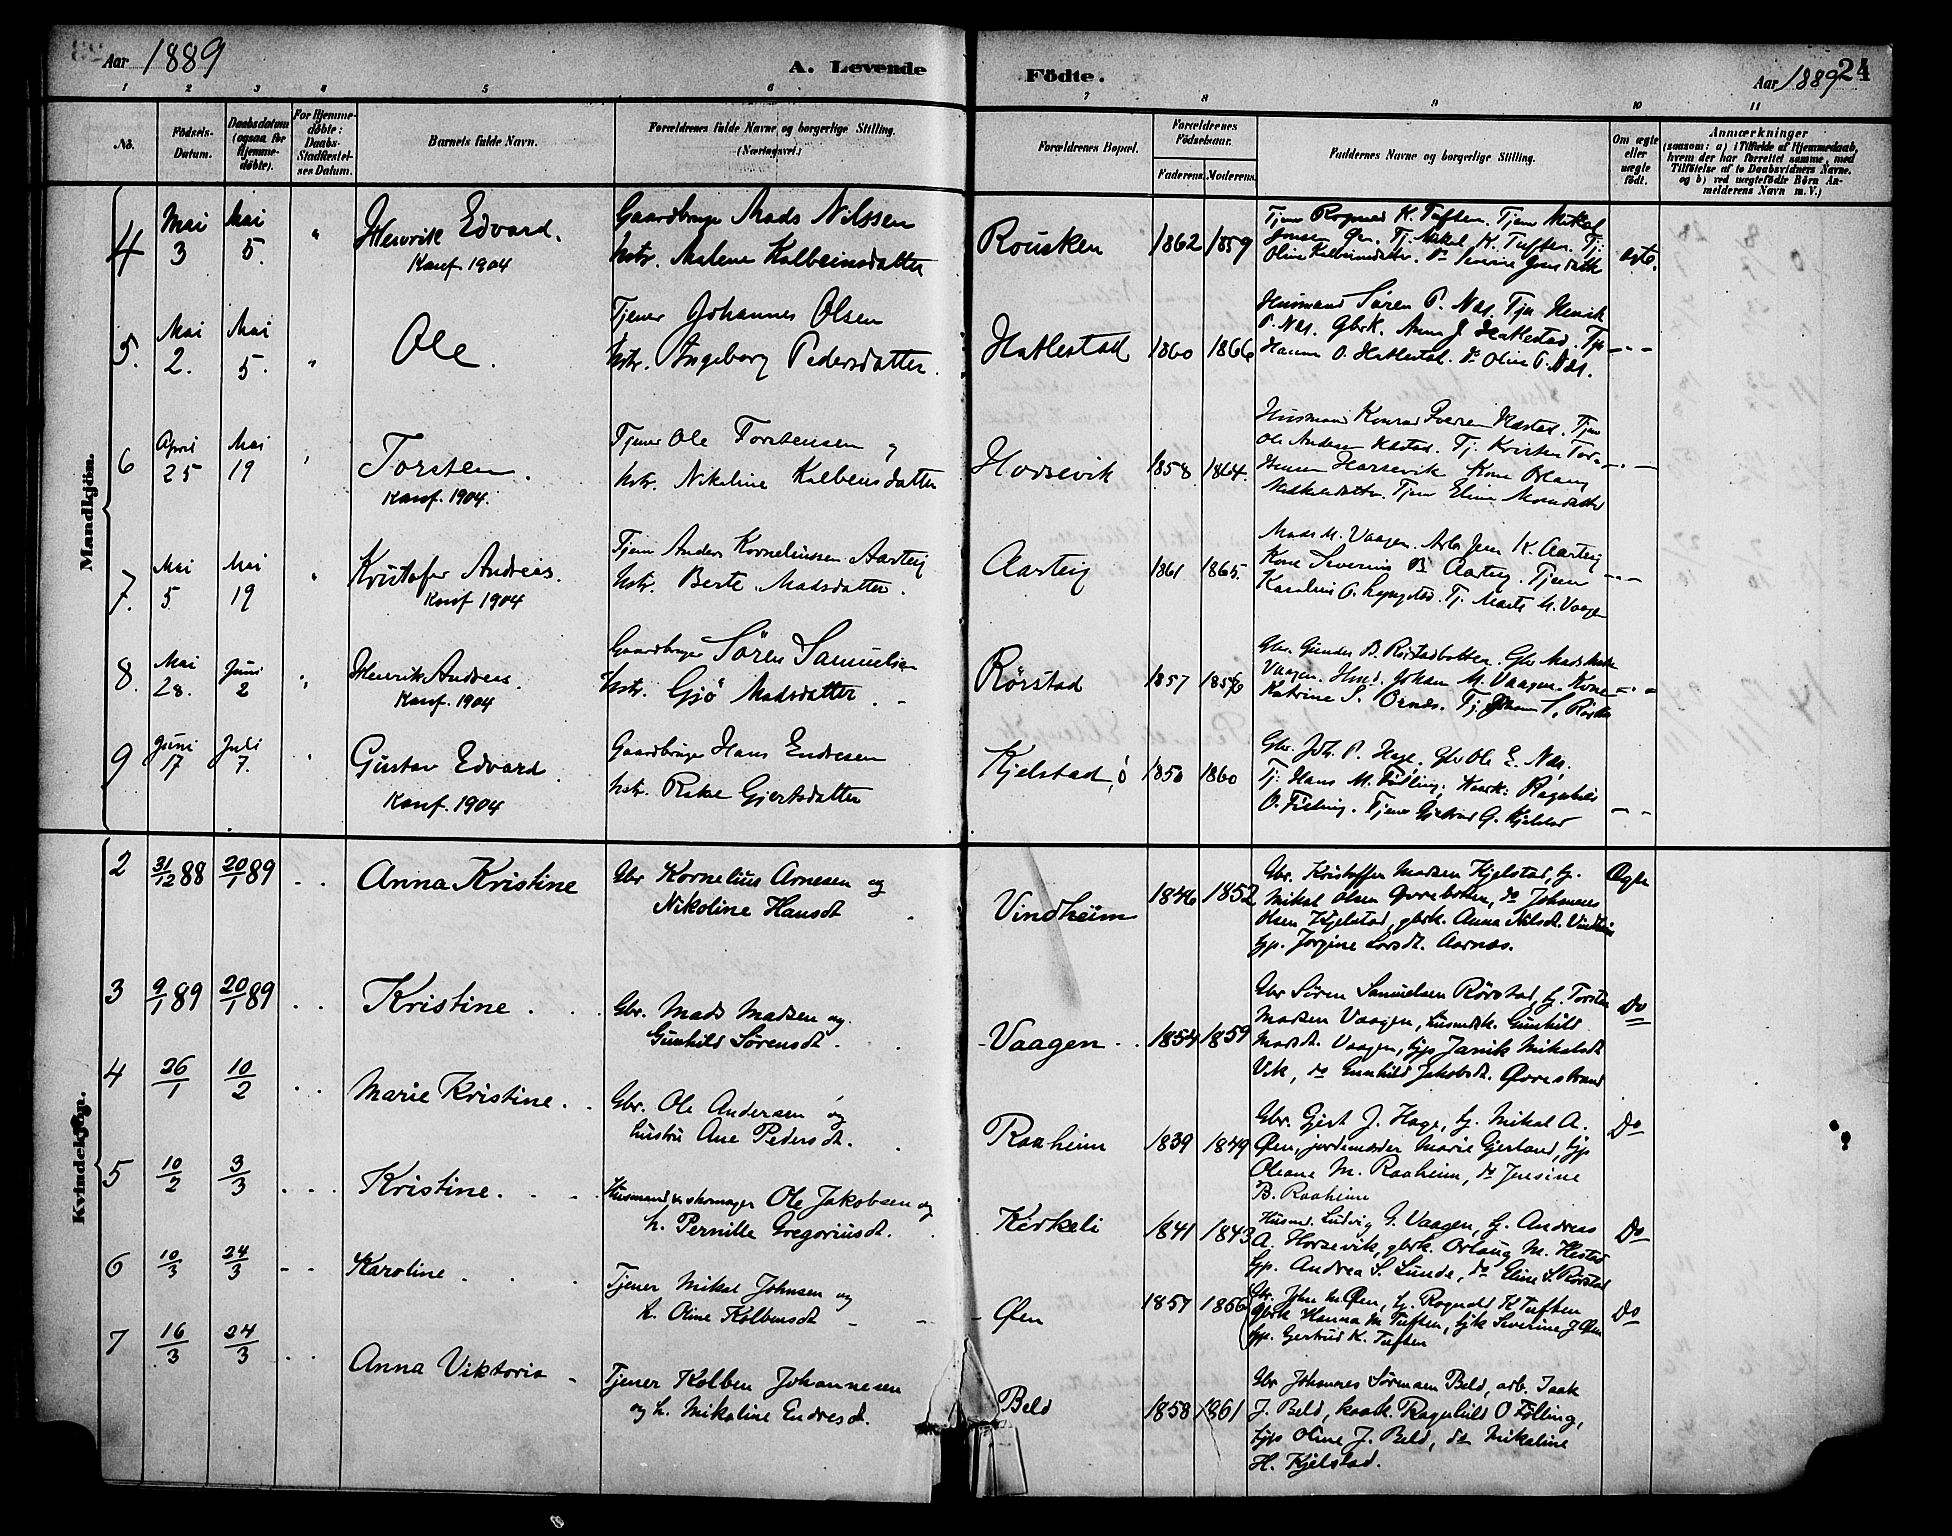 Aar 1889
A. Levende Födte.
Aar 1889
24
1 2 3 4 5 6 7 8 9 10 11
No.
Födsels-
Datum.
Daabsdatum
(ogsaa for
Hjemme-
døbte).
For Hjemme-
døbte:
Daabs-
Stadfæstel-
ses Datum.
Barnets fulde Navn.
Forældrenes fulde Navne og borgerlige Stilling.
(Næringsvei.)
Forældrenes Bopæl.
Forældrenes
Födselsaar.
Faderens. Moderens.
Faddernes Navne og borgerlige Stilling.
Om ægte
eller
uægte
födt.
Anmærkninger
(saasom: a) i Tilfælde af Hjemmedaab,
hvem der har forrettet samme, med
Tilföielse af to Daabsvidners Navne.
og b) ved uægtefödte Börn An-
melderens Navn m. V.)
Mandkjön.
4 Mai 3 Mai 5. " Henrik Edvard.
Konf. 1904
Gaardbruger Mads Nilssen
Hstr. Malene Kolbeinsdatter
Rousken 1862 1859
Tjener Rognald K. Tuften. Tjener Mikal
Oline Kolbeinsdatter. Do Severine Jonsdatter
ægte.
5. Mai 2. Mai 5. " Ole.
Tjener Johannes Olsen
Hstr. Ingeborg Pedersdatter.
Hatlestad 1860 1866
Husmand Søren P. Næs. Tjn Henrik
P. Næs. Gbrk. Anna J. Hatlestad. Tp
Hanna O. Hatlestad. do Oline P. Næs.
6 April 25 Mai 19 " Torsten.
Konf. 1904.
Tjener Ole Torstensen og
Hstr. Nikoline Kolbensdatter
Horsevik 1858 1864.
7. Mai 5 Mai 19 " Kristofer Andreas.
Konf 1904
Tjener Anders Korneliussen Aarteig
Hstr. Berte Madsdatter.
Aarteig 1861 1865.
Mads M. Vaagen. Arb. Jens K. Aarteig
Kone Severine B. Aarteig. Tjener
Karoline O. Lyngstad. Tj. Marte M. Vaagen
8. Mai 28. Juni 2 " Henrik Andreas.
Konf. 1904
Gaardbruger Søren Samuelsen
Hstr. Gjø Madsdatter.
Rørstad 1857 1856
Gbr. Gunder B. Rørstadbotten. Gbr Mads Mads.
Vaagen. Hmd. Johan M. Vaagen. Kone
Katrine S. Ornæs. Tj.
9 Juni 17 Juli 7. " Gustav Edvard.
Konf. 1904
Gaardbruger Hans Endresen
Hstr. Rikke Gjertsdatter
Kjelstad, ö 1850 1860
Gbr. Joh. P. Hage. Gbr Ole E. Næs.
Tj. Hans M. Fölling, Kaark. Ragnhild
O. Fölling. Tjener Gjertrud G. Kjelstad
Kvindekjön.
2 31/12 88 20/1 89 Anna Kristine
Gbr Kornelius Arnesen og
Nikoline Hansdt
Vindheim 1846 1852
Gbr. Kristoffer Madsen Kjelstad, G.
Mikal Olsen Øvrebotten, do Johannes
Olsen Kjelstad, gbrk. Anna Nilsdt. Vindheim
Gp. Jorgine Larsdt. Aarnæs.
Ægte
3 9/1 89 20/1 89 Kristine
Gbr. Mads Madsen og
Gunhild Sørensdt.
Vaagen 1854 1859
Gbr Søren Samuelsen Rörstad, G. Torsten
Madsen Vaagen, husmdsk. Gunhild
Madsdt. Vaagen, tjp Janik Mikalsdt
Vik, do Gunhild Jakobsdt. Øvrestrand
Do
4 26/1 10/2 Marie Kristine.
Gbr. Ole Andersen og
hustru Ane Pedersdt.
Raaheim 1839 1849
Gbr. Gjert J. Hage, G. Mikal A.
Øen, jordemoder Marie Gjerland, tjp
Oleane M. Raaheim, do Jensine
B. Raaheim
Do
5 10/2 3/3 Kristine.
Husmand & skomager Ole Jakobsen og
h. Pernille Gregoriusdt.
Kirkeli 1841 1843
Husmd. Ludvig G. Vaagen, G. Andreas
A. Horsevik, gbrk. Orlaug M. Hestad
Gp. Andrea S. Lunde, do Eline S. Rörstad
Do
6 10/3 24/3 Karoline.
Tjener Mikal Johnsen og
h. Oline Kolbensdt
Øen 1857 1856
Gbr. John M. Øen, G. Rognald K Tuften
Gbrk Hanna M Tuften, tjk Severine J Øen
Gp. Gertrud K. Tuften
Do
7 16/3 24/3 Anna Viktoria
Tjener Kolben Johannesen
og h. Mikaline Endresdt.
Beld 1858 1861
Gbr Johannes Sørensen Beld, arb. Isak
J. Beld, kaark. Ragnhild O Fölling,
tjp Oline J. Beld, do Mikaline
H. Kjelstad.